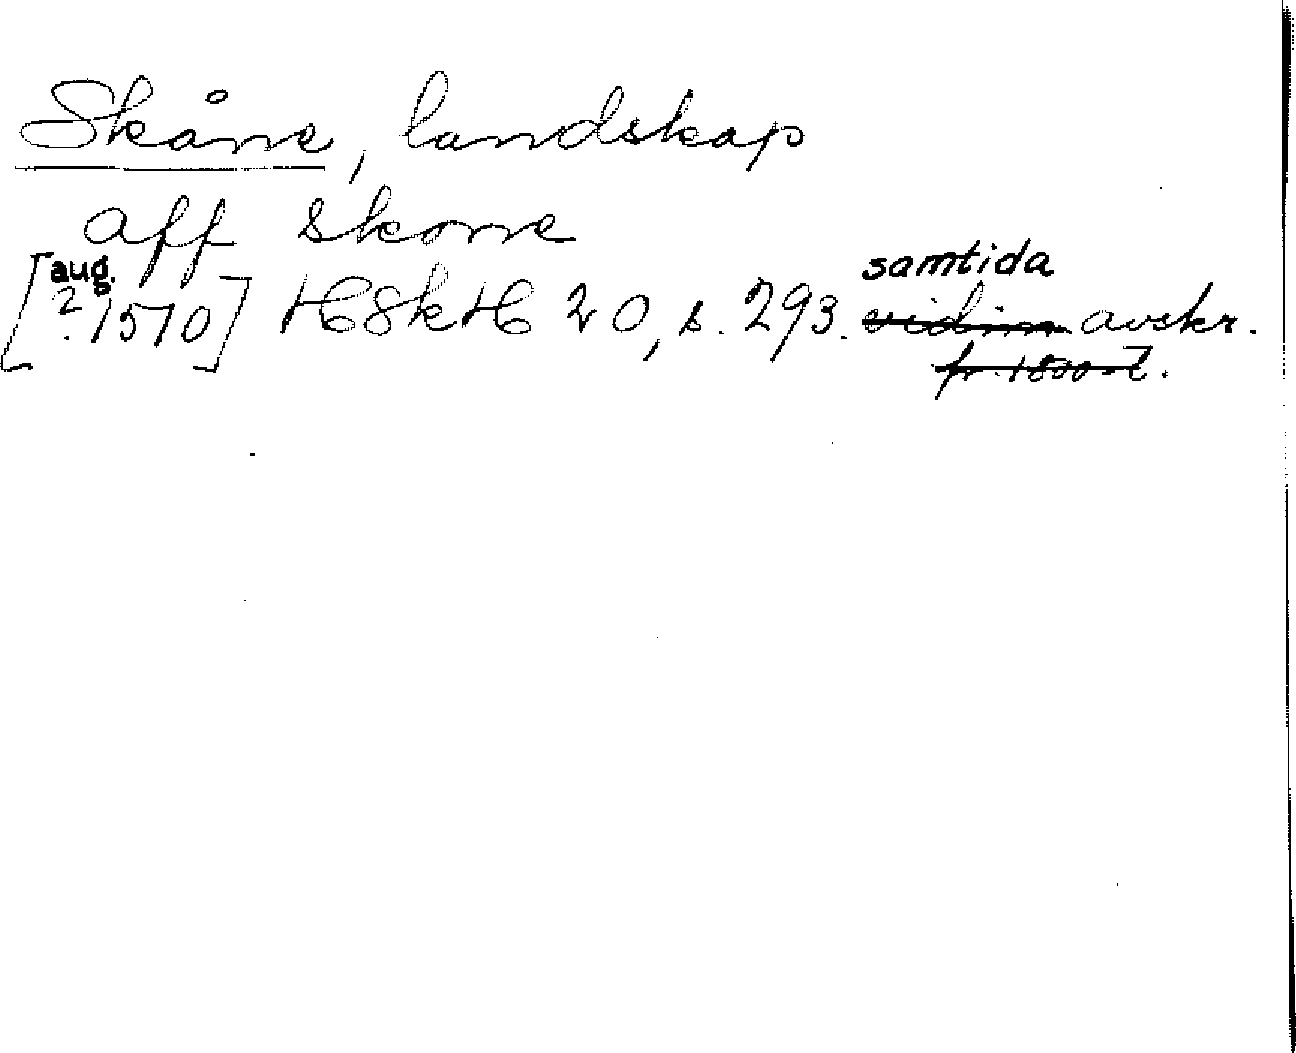 Skåne, landskap
aff skone
samtida
[aug. 2. 1570] HSkH 20, s. 293. vidim avskr.
fr. 1800-t.